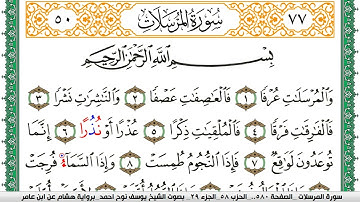 ٧٧ سُورَةُ المُرْسَلَات ٥٠
بِسْمِ اللَّهِ الرَّحْمَٰنِ الرَّحِيمِ
وَالْمُرْسَلَاتِ عُرْفًا ١ فَالْعَاصِفَاتِ عَصْفًا ٢ وَالنَّاشِرَاتِ نَشْرًا ٣
فَالْفَارِقَاتِ فَرْقًا ٤ فَالْمُلْقِيَاتِ ذِكْرًا ٥ عُذْرًا أَوْ نُذُرًا ٦ إِنَّمَا
تُوعَدُونَ لَوَاقِعٌ ٧ فَإِذَا النُّجُومُ طُمِسَتْ ٨ وَإِذَا السَّمَاءُ فُرِجَتْ
سورة المرسلات الصفحة ٥٨٠... الحزب ٥٨ الجزء ٢٩ بصوت الشيخ يوسف نوح احمد برواية هشام عن ابن عامر